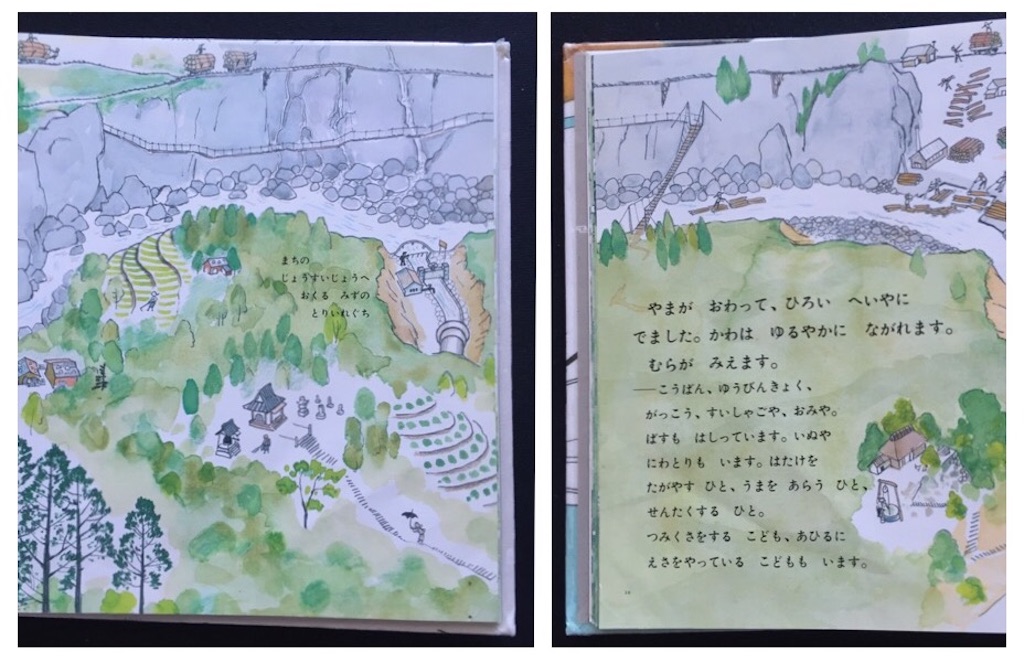 まちの
じょうすいじょうへ
おくる みずの
とりいれぐち
やまが おわって、ひろい へいやに
でました。かわは ゆるやかに ながれます。
むらが みえます。
──こうばん、ゆうびんきょく、
がっこう、すいしゃごや、おみや。
ばすも はしっています。いぬや
にわとりも います。はたけを
たがやす ひと、うまを あらう ひと、
せんたくする ひと。
つみくさをする こども、あひるに
えさをやっている こどもも います。